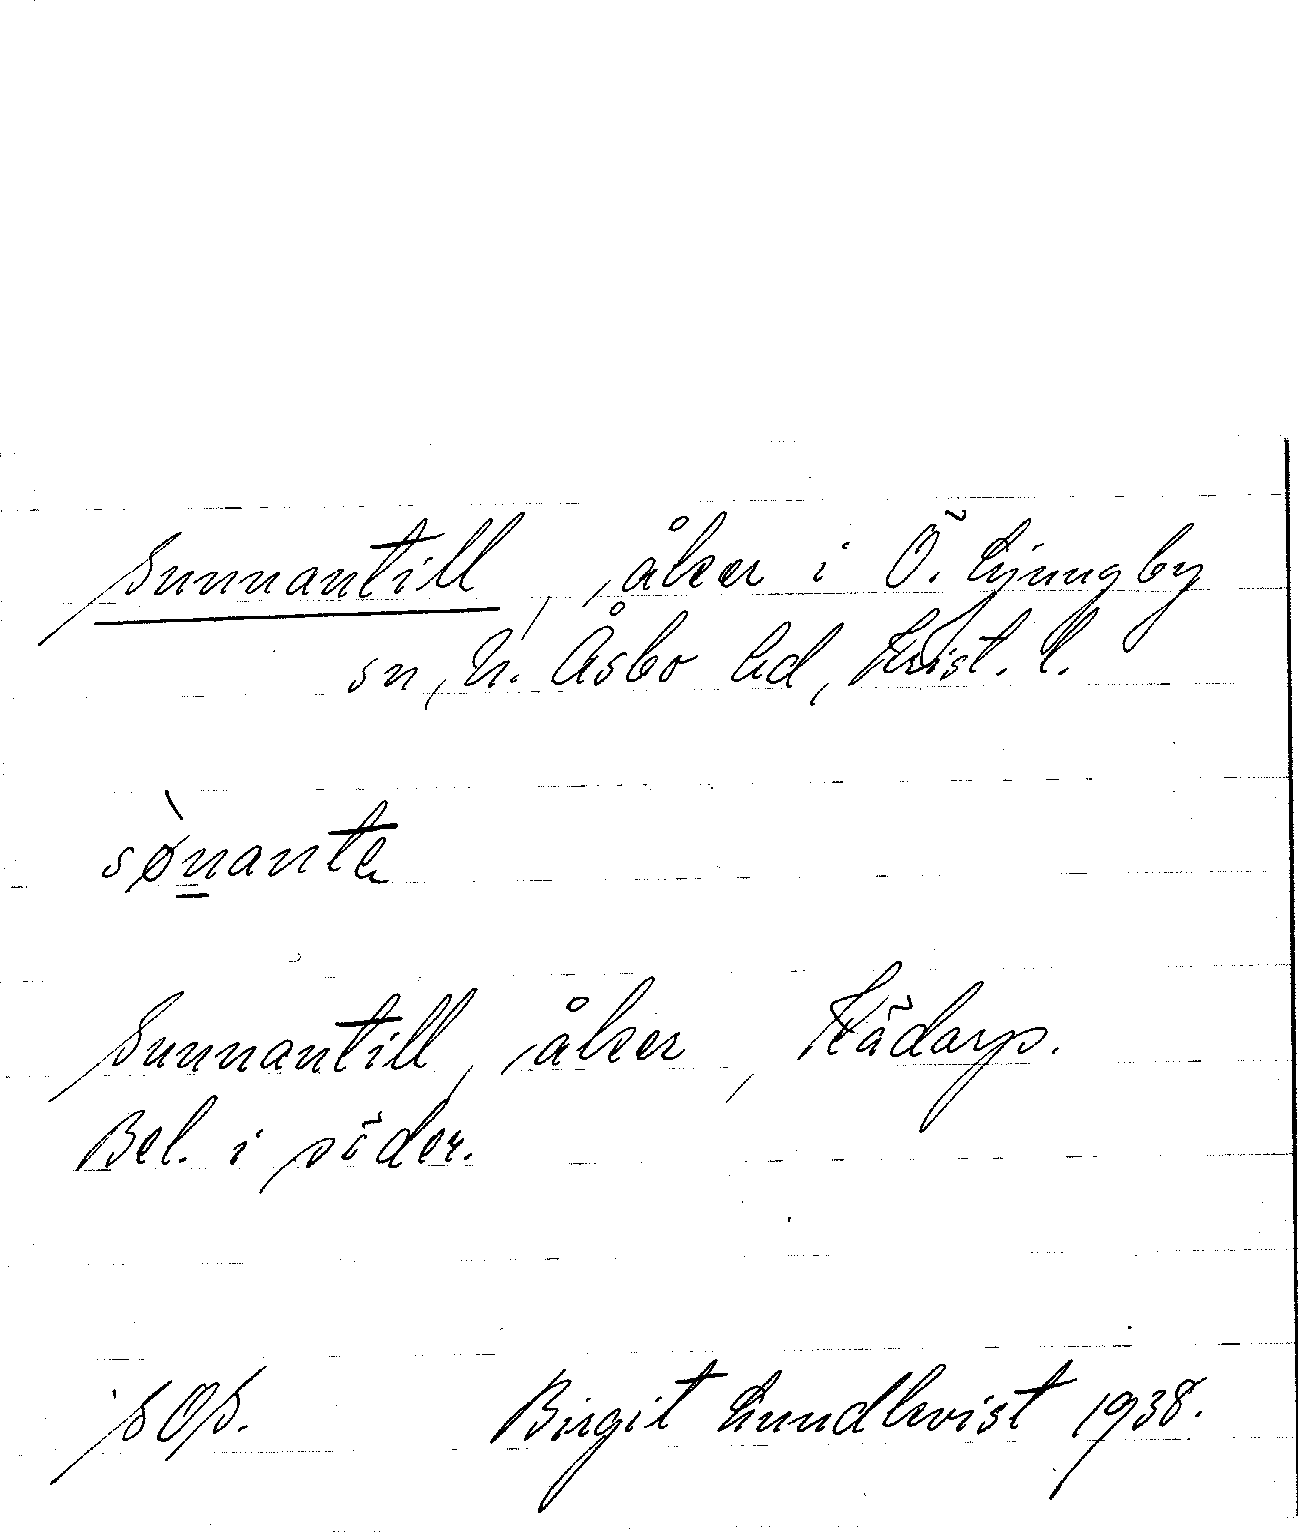 Sunnantill, åker i Ö. Ljungby
sn, N. Åsbo hd, Krist. l.
sø̀nante
Sunnantill, åker, Kådarp.
Bel. i söder.
SOS. Birgit Lundkvist 1938.